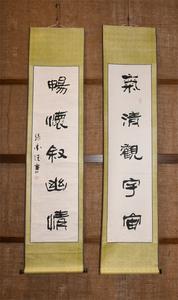 氣清觀宇宙
暢懷敘幽情